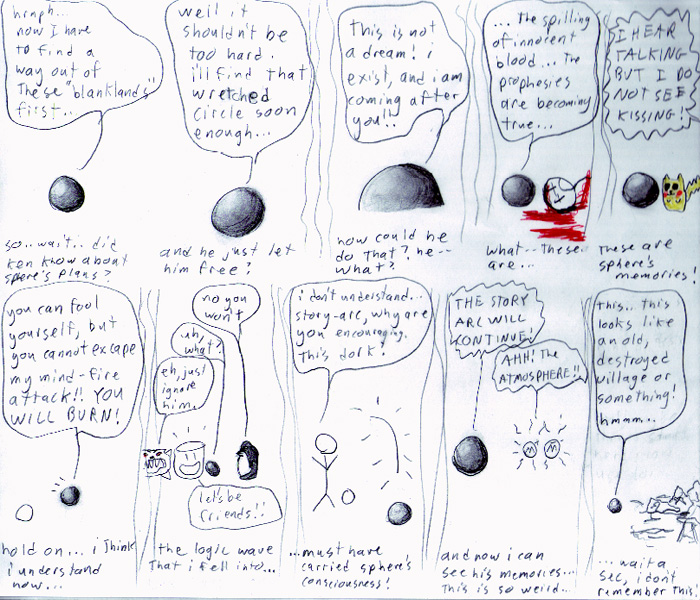 hrmph...
now I have
to find a
way out of
These "blanklands"
first...
so..wait.. did
ken know about
sphere's plans?
well it
shouldn't be
too hard.
i'll find that
wretched
circle soon
enough...
and he just let
him free?
This is not
a dream! i
exist, and i am
coming after
you!!
how could he
do That? he--
what?
... The spilling
of innocent
blood... The
prophesies
are becoming
true...
what-- These..
are...
I HEAR
TALKING
BUT I DO
NOT SEE
KISSING!
These are
sphere's
memories!
you can fool
yourself, but
you cannot excape
my mind-fire
attack!! YOU
WILL BURN!
hold on... i Think
i understand
now...
no you
won't
uh,
what?
eh, just
ignore
him.
let's be
friends!!
the logic wave
That i fell into...
i don't understand...
story-arc, why are
you encouraging
This dork!
...must have
carried sphere's
consciousness!
THE STORY
ARC WILL
CONTINUE!
AHH! The
ATMOSPHERE!!
and now i can
see his memories...
This is so weird...
This.. this
looks like
an old,
destroyed
village or
something!
hmmm..
...wait a
sec, i don't
remember This!